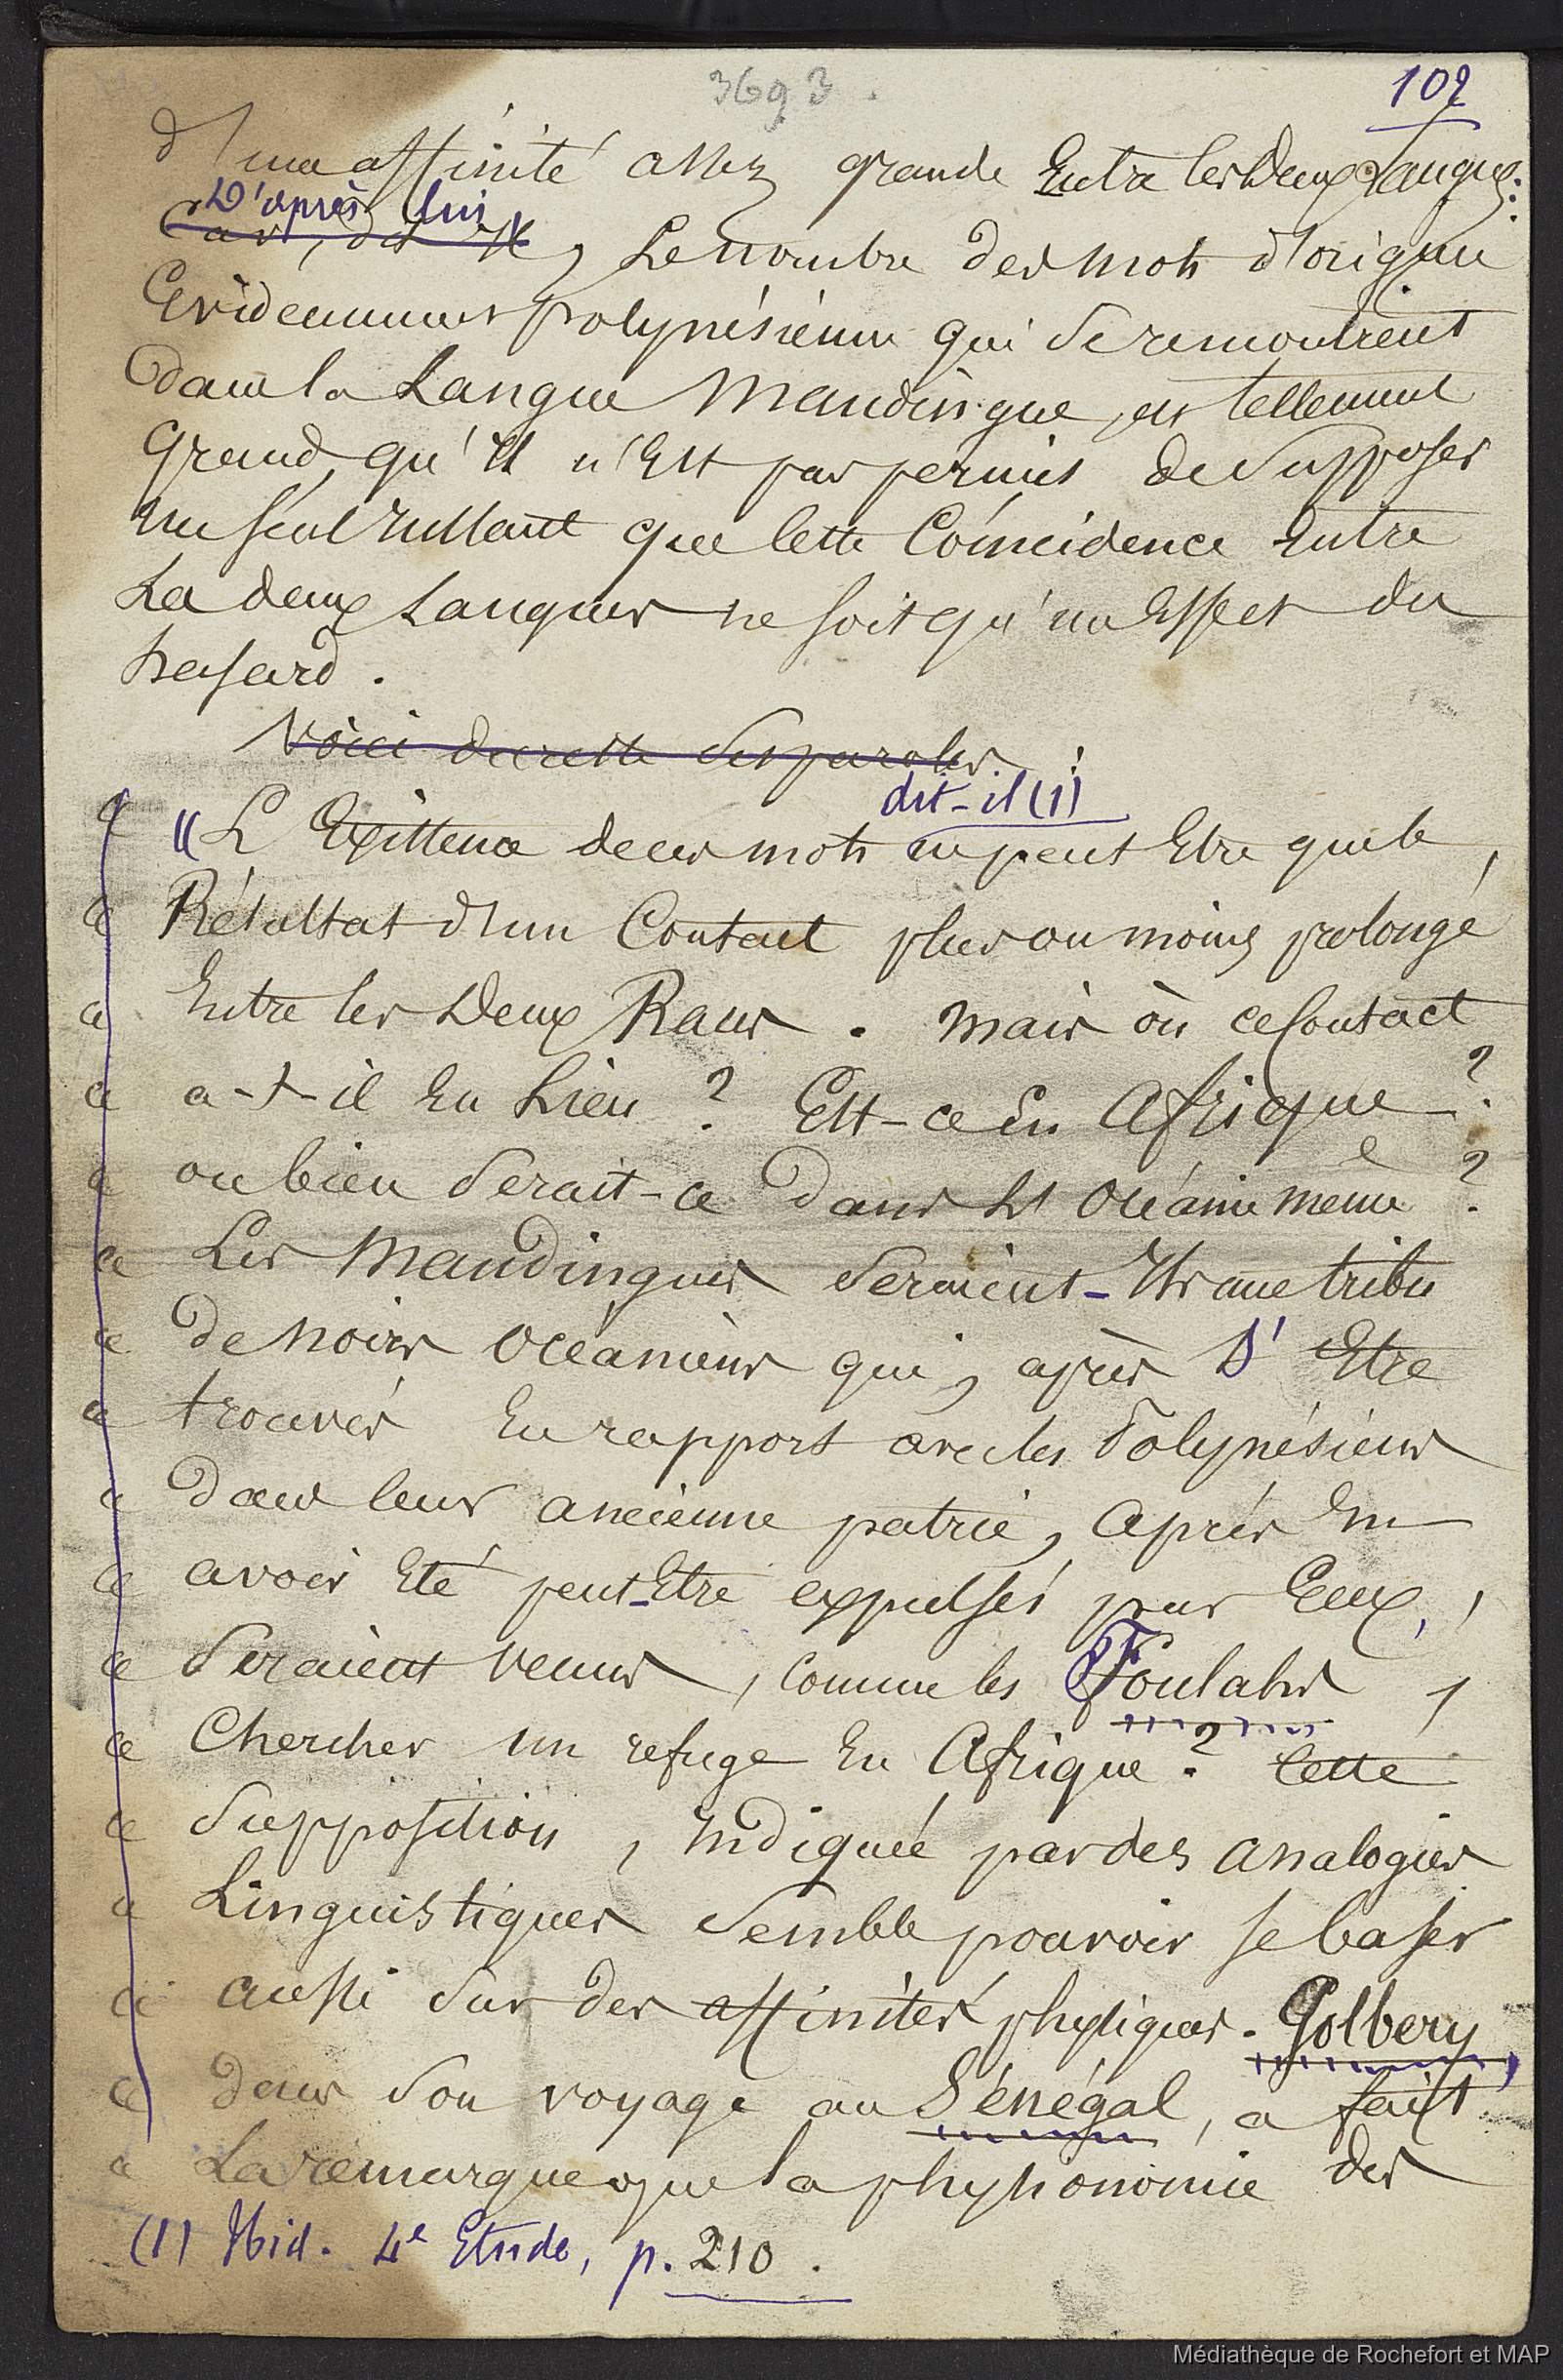 3693.
102
d'une affinité assez grande Entre les Deux Langues :
D'après lui,
Car, dit il, Le nombre des mots d'origine
Evidemment polynésienne qui se remontrent
dans la Langue Mandingue, est tellement
grand, qu'il n'Est pas permis de Supposer
un seul instant que Cette Coïncidence Entre
Les deux Langues ne soit qu'un Effet du
hasard.
Voici du reste ses paroles :
dit-il (1)
« L'Existence de ces mots ne peut Etre que le
« Résultat d'un Contact plus ou moins prolongé
« Entre les Deux Races. Mais où ce Contact
« a-t-il Eu Lieu ? Est-ce En Afrique ?
« ou bien Serait-ce Dans l'Océanie même ?
« Les Mandingues Seraient-Ils une tribu
« De Noirs Océaniens qui, après S'Etre
« trouvés En rapport avec les Polynésiens
« dans leur ancienne patrie, après En
« avoir Eté peut-Etre expulsés par Eux,
« Seraient venus, comme les Foulahs,
« Chercher un refuge En Afrique ? Cette
« Supposition, Indiquée par des analogies
« Linguistiques Semble pouvoir se baser
« aussi Sur des affinités physiques. Golbery,
« dans Son voyage au Sénégal, a fait
« La remarque que la physionomie des
(1) Ibid. 4e Etude, p. 210.
Médiathèque de Rochefort et MAP